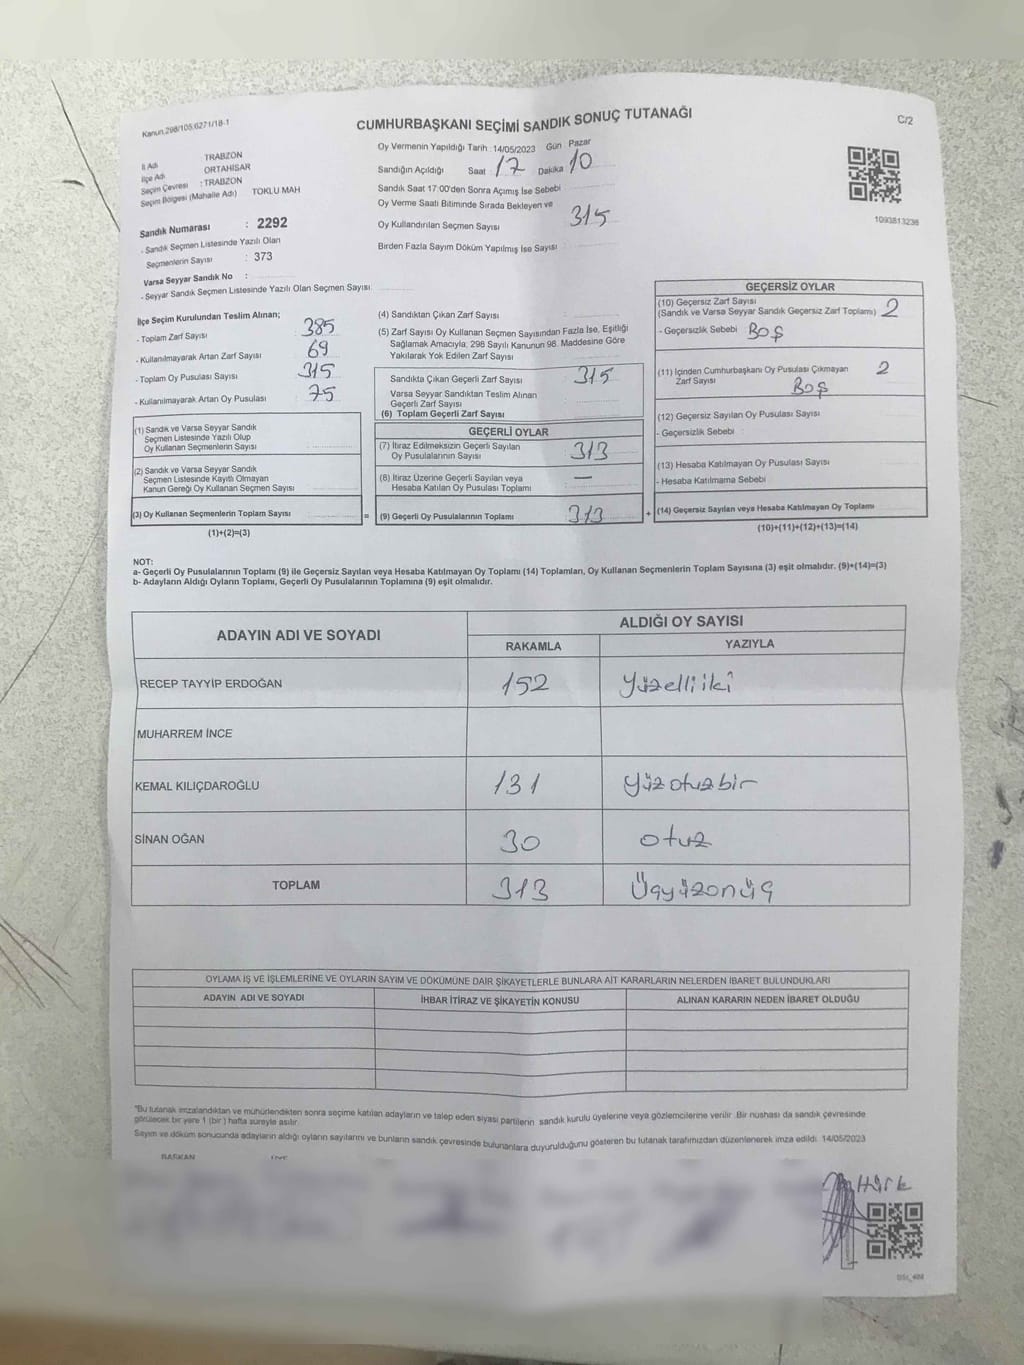 Kanun.298/105.6271/18-1
CUMHURBAŞKANI SEÇİMİ SANDIK SONUÇ TUTANAĞI
C/2
İl Adı TRABZON
İlçe Adı ORTAHİSAR
Seçim Çevresi : TRABZON
Seçim Bölgesi (Mahalle Adı) TOKLU MAH
Sandık Numarası : 2292
- Sandık Seçmen Listesinde Yazılı Olan
Seçmenlerin Sayısı : 373
Varsa Seyyar Sandık No :
- Seyyar Sandık Seçmen Listesinde Yazılı Olan Seçmen Sayısı:
Oy Vermenin Yapıldığı Tarih : 14/05/2023 Gün Pazar
Sandığın Açıldığı Saat : 17 Dakika : 10
Sandık Saat 17:00'den Sonra Açımış İse Sebebi
Oy Verme Saati Bitiminde Sırada Bekleyen ve
Oy Kullandırılan Seçmen Sayısı : 315
Birden Fazla Sayım Döküm Yapılmış İse Sayısı :
1093813236
İlçe Seçim Kurulundan Teslim Alınan;
- Toplam Zarf Sayısı : 385
- Kullanılmayarak Artan Zarf Sayısı : 69
- Toplam Oy Pusulası Sayısı : 315
- Kullanılmayarak Artan Oy Pusulası : 75
(1) Sandık ve Varsa Seyyar Sandık
Seçmen Listesinde Yazılı Olup
Oy Kullanan Seçmenlerin Sayısı :
(2) Sandık ve Varsa Seyyar Sandık
Seçmen Listesinde Kayıtlı Olmayan
Kanun Gereği Oy Kullanan Seçmen Sayısı :
(3) Oy Kullanan Seçmenlerin Toplam Sayısı :
(1)+(2)=(3)
=
(4) Sandıktan Çıkan Zarf Sayısı :
(5) Zarf Sayısı Oy Kullanan Seçmen Sayısından Fazla İse, Eşitliği
Sağlamak Amacıyla, 298 Sayılı Kanunun 98. Maddesine Göre
Yakılarak Yok Edilen Zarf Sayısı :
Sandıkta Çıkan Geçerli Zarf Sayısı : 315
Varsa Seyyar Sandıktan Teslim Alınan
Geçerli Zarf Sayısı :
(6) Toplam Geçerli Zarf Sayısı :
GEÇERLİ OYLAR
(7) İtiraz Edilmeksizin Geçerli Sayılan
Oy Pusulalarının Sayısı : 313
(8) İtiraz Üzerine Geçerli Sayılan veya
Hesaba Katılan Oy Pusulası Toplamı : —
(9) Geçerli Oy Pusulalarının Toplamı : 313
+
GEÇERSİZ OYLAR
(10) Geçersiz Zarf Sayısı
(Sandık ve Varsa Seyyar Sandık Geçersiz Zarf Toplamı) : 2
- Geçersizlik Sebebi : Boş
(11) İçinden Cumhurbaşkanı Oy Pusulası Çıkmayan
Zarf Sayısı 2
Boş
(12) Geçersiz Sayılan Oy Pusulası Sayısı :
- Geçersizlik Sebebi :
(13) Hesaba Katılmayan Oy Pusulası Sayısı :
- Hesaba Katılmama Sebebi :
(14) Geçersiz Sayılan veya Hesaba Katılmayan Oy Toplamı :
(10)+(11)+(12)+(13)=(14)
NOT:
a- Geçerli Oy Pusulalarının Toplamı (9) ile Geçersiz Sayılan veya Hesaba Katılmayan Oy Toplamı (14) Toplamları, Oy Kullanan Seçmenlerin Toplam Sayısına (3) eşit olmalıdır. (9)+(14)=(3)
b- Adayların Aldığı Oyların Toplamı, Geçerli Oy Pusulalarının Toplamına (9) eşit olmalıdır.
ADAYIN ADI VE SOYADI
ALDIĞI OY SAYISI
RAKAMLA YAZIYLA
RECEP TAYYİP ERDOĞAN 152 Yüzelliiki
MUHARREM İNCE
KEMAL KILIÇDAROĞLU 131 yüzotuzbir
SİNAN OĞAN 30 otuz
TOPLAM 313 Üçyüzonüç
OYLAMA İŞ VE İŞLEMLERİNE VE OYLARIN SAYIM VE DÖKÜMÜNE DAİR ŞİKAYETLERLE BUNLARA AİT KARARLARIN NELERDEN İBARET BULUNDUKLARI
ADAYIN ADI VE SOYADI İHBAR İTİRAZ VE ŞİKAYETİN KONUSU ALINAN KARARIN NEDEN İBARET OLDUĞU
*Bu tutanak imzalandıktan ve mühürlendikten sonra seçime katılan adayların ve talep eden siyasi partilerin sandık kurulu üyelerine veya gözlemcilerine verilir. Bir nüshası da sandık çevresinde
görülecek bir yere 1 (bir) hafta süreyle asılır.
Sayım ve döküm sonucunda adayların aldığı oyların sayılarını ve bunların sandık çevresinde bulunanlara duyurulduğunu gösteren bu tutanak tarafımızdan düzenlenerek imza edildi. 14/05/2023
BAŞKAN ÜYE